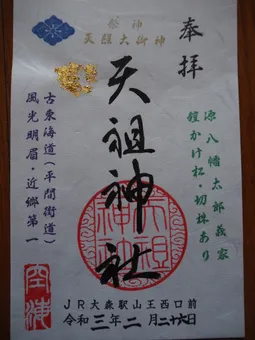 奉拝
祭神
天照大御神
源八幡太郎義家
鎧かけ松・切株あり
天祖神社
天祖神社
古東海道（平間街道）
風光明眉・近郷第一
JR大森駅山王西口前
令和三年二月二十六日